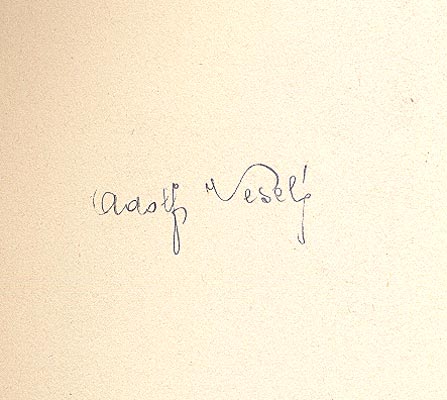 Adolf Veselý